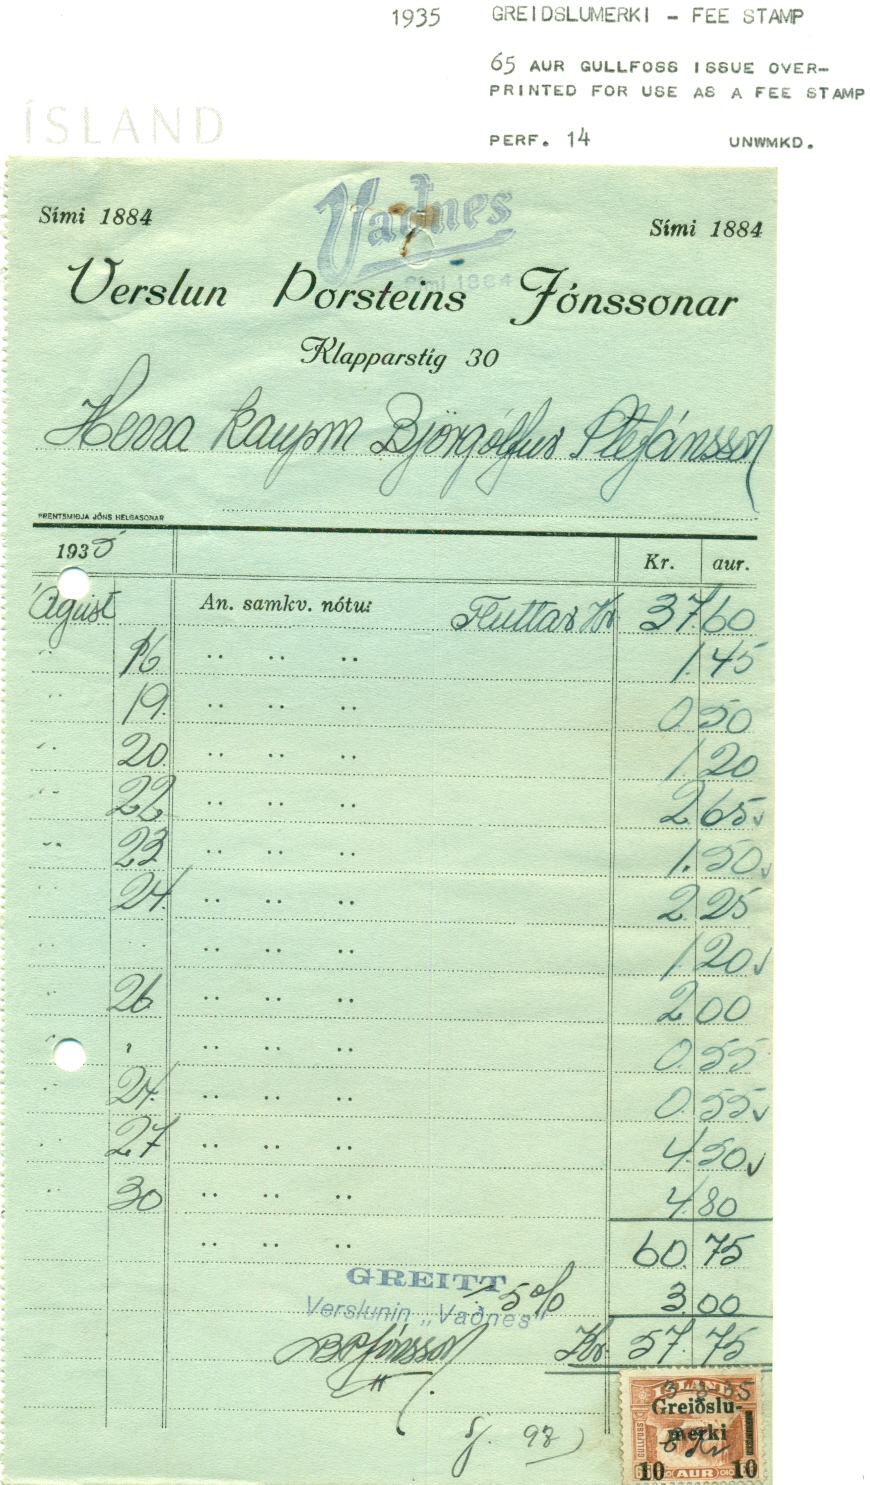 1935 GREIDSLUMERKI - FEE STAMP
65 AUR GULLFOSS ISSUE OVER-
PRINTED FOR USE AS A FEE STAMP
ÍSLAND
PERF. 14 UNWMKD.
Vaðnes
Sími 1884
Sími 1884 Sími 1884
Verslun Þorsteins Jónssonar
Klapparstíg 30
Herra kaupm Björgólfur Stefánsson
PRENTSMIÐJA JÓNS HELGASONAR
1935 Kr. aur.
Ágúst An. samkv. nótu: Fluttar Kr 37.60
" 16 " " " 1.45
" 19. " " " 0.50
" 20. " " " 1.20
" 22 " " " 2.65
" 23. " " " 1.50
" 24. " " " 2.25
" " " " " 1.20
" 26. " " " 2.00
" " " " " 0.55
" 24. " " " 0.55
" 27 " " " 4.50
" 30 " " " 4.80
" " " 60.75
GREITT 5% 3.00
Verslunin „Vaðnes"
Kr. 57.75
ÍSLAND
Greiðslu-
merki
GULLFOSS
10 AUR 10
98